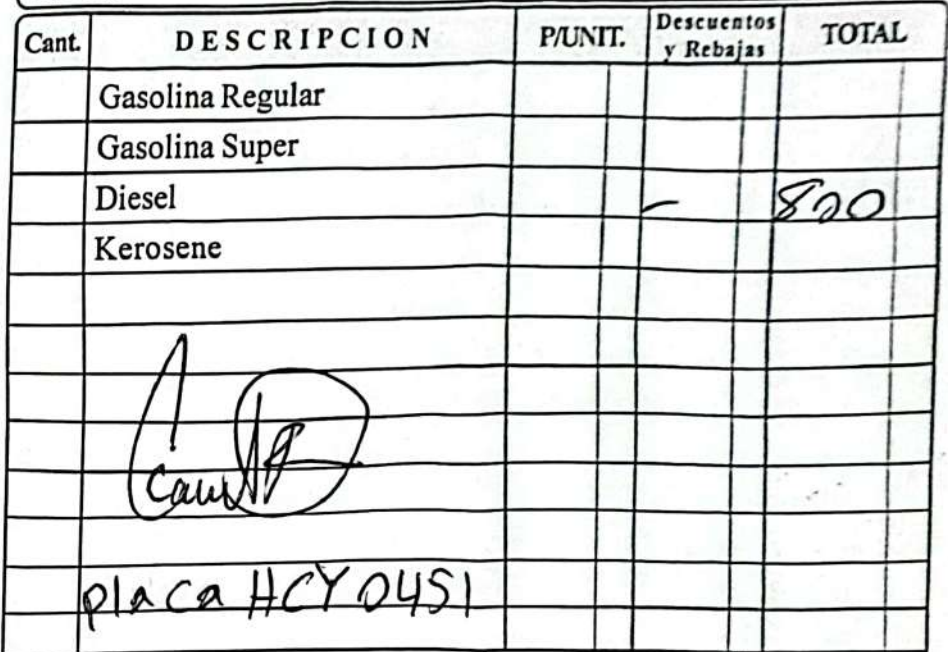 Cant. DESCRIPCION P/UNIT. Descuentos y Rebajas TOTAL
Gasolina Regular
Gasolina Super
Diesel - 820
Kerosene
placa HCY 0451